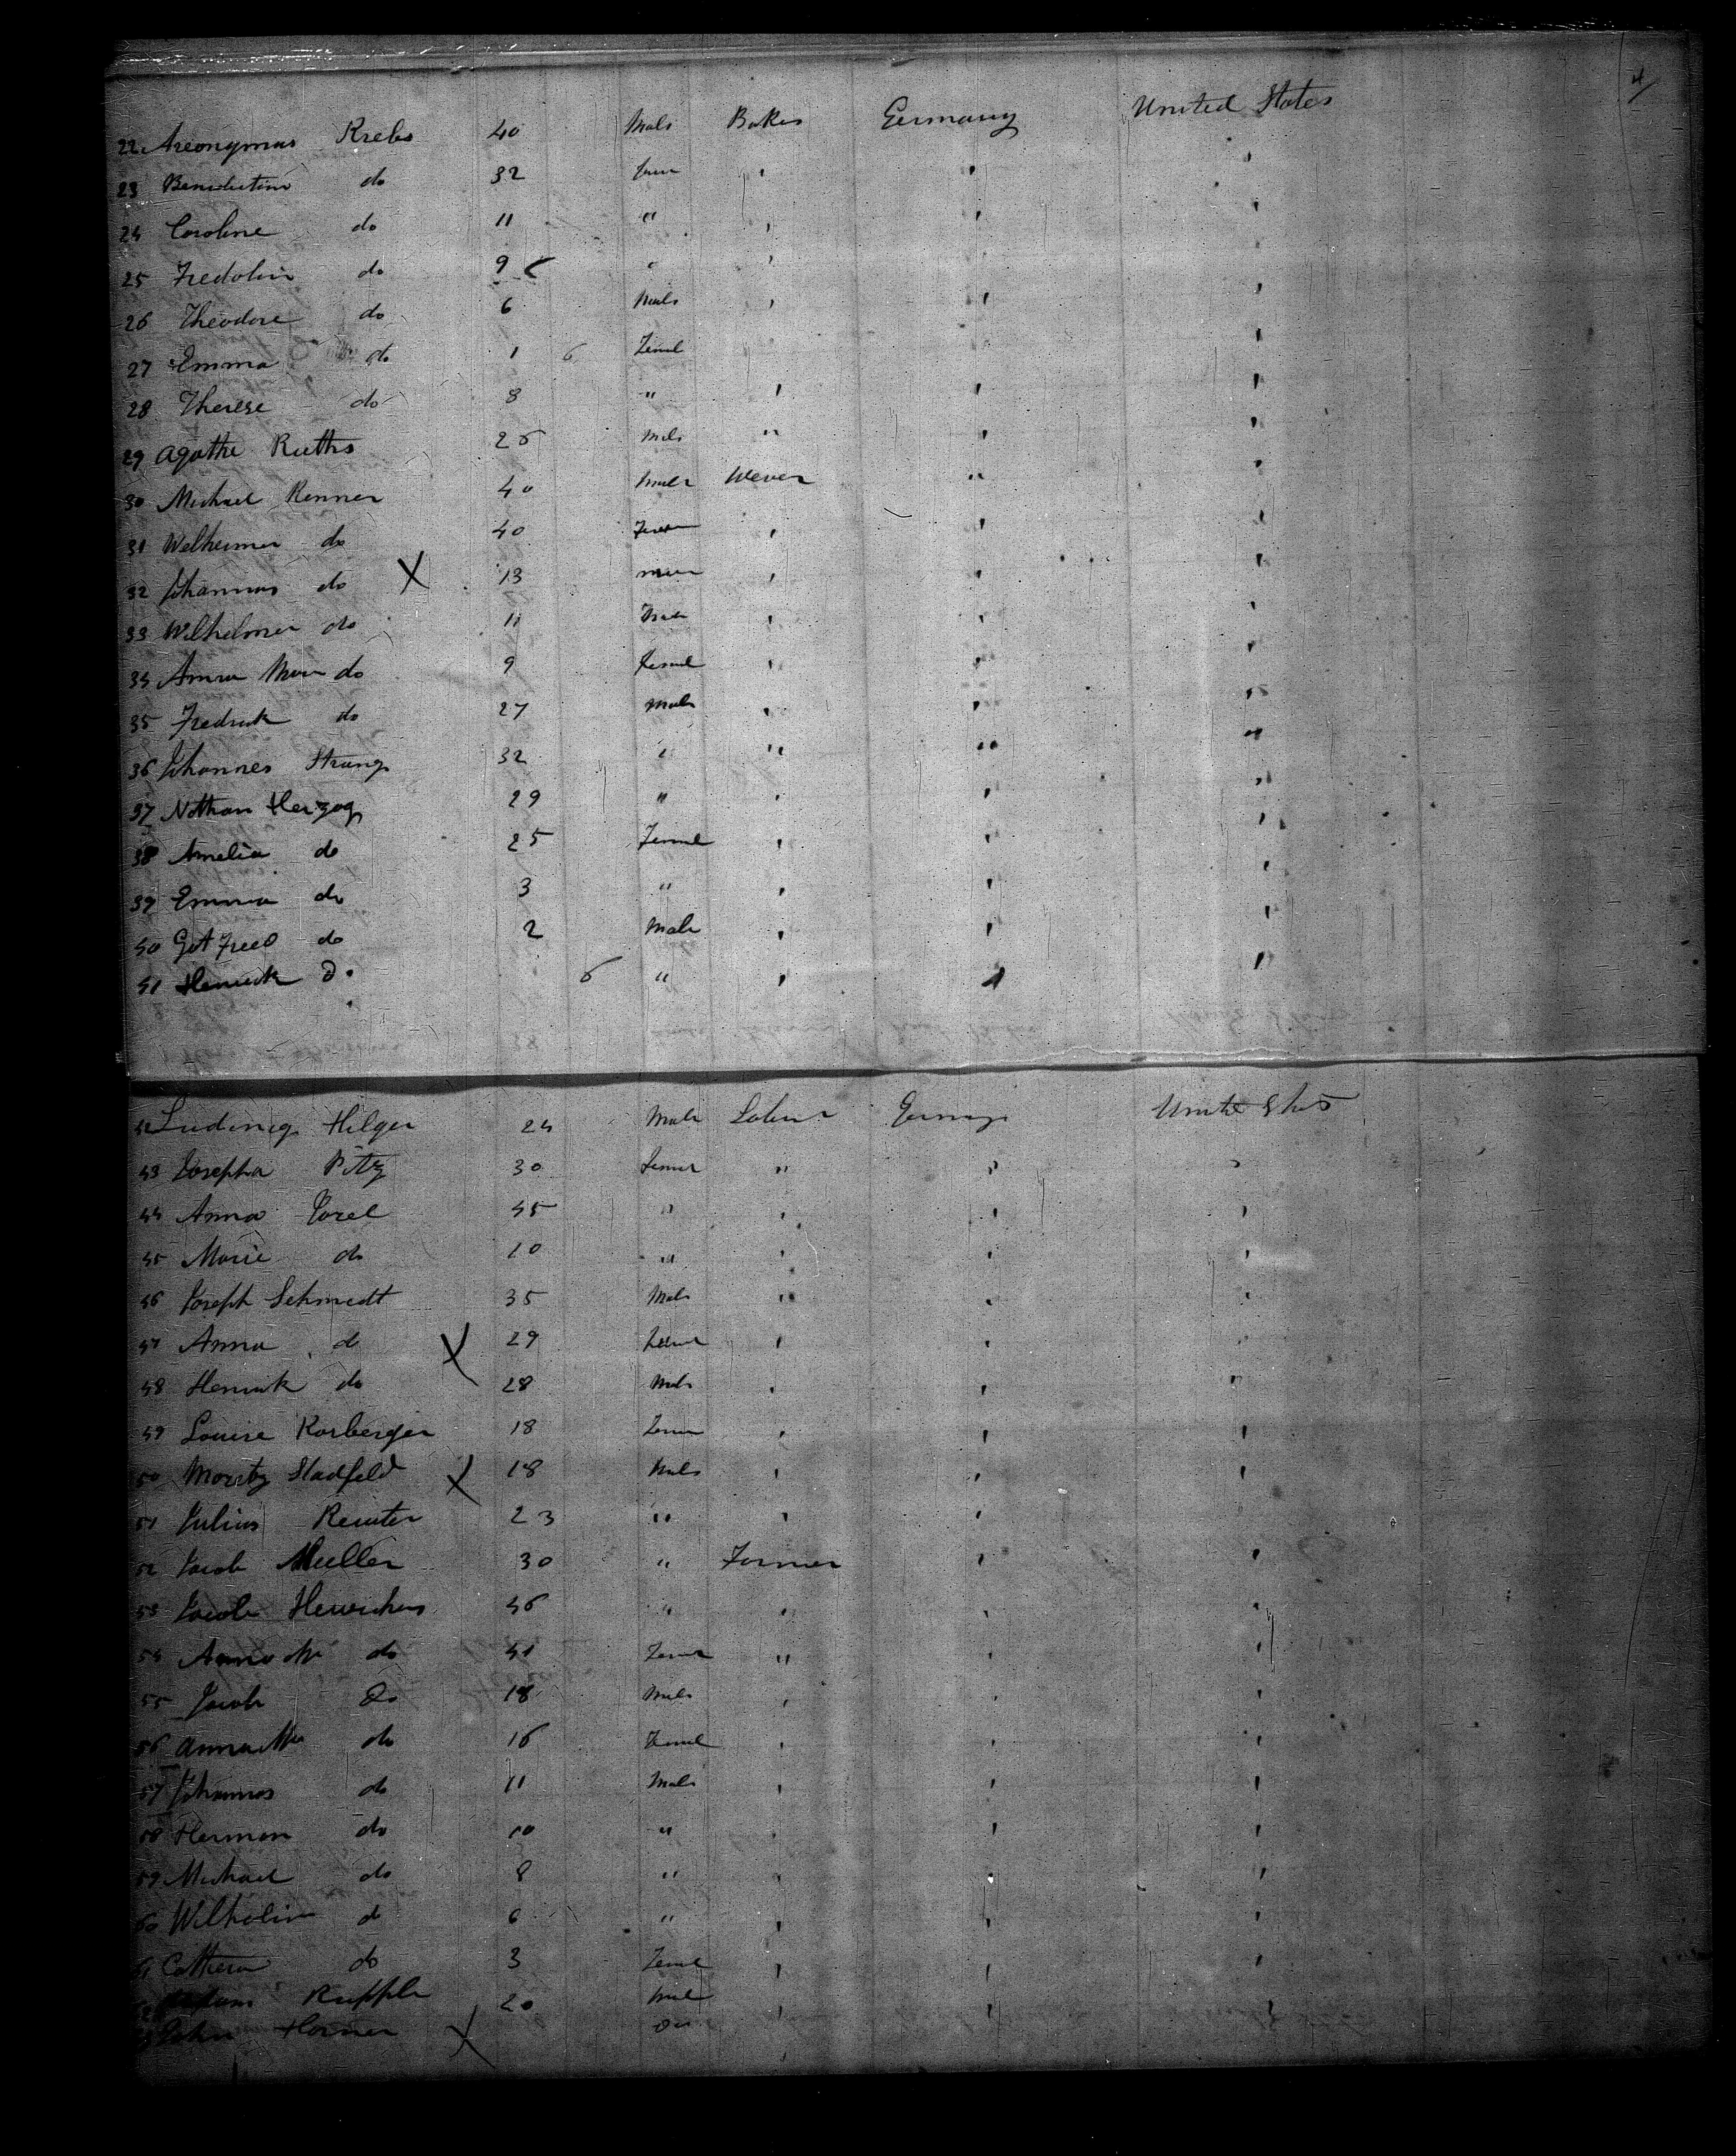 4
22 Areonymus Krebs 40 Male Baker Germany United States
23 Benedictine do 32 " " "
24 Caroline do 11 " " " "
25 Fredolin do 9 " " "
26 Theodore do 6 Male " " "
27 Emma do 1 6 Femal "
28 Therese do 8 " " " "
29 Agathe Rieths 26 Male " " "
30 Michael Renner 40 Male Wever " "
31 do 40 " " "
32 Johannes do X 13 " " "
33 Wilhelmer do 11 Male " " "
34 Anna do 9 Femal " " "
35 Fredrick do 27 Male " " "
36 Johannes Strang 32 " " " "
37 Nathan Herzog 29 " " " "
38 Amelia do 25 Femal " " "
39 Emma do 3 " " " "
40 Gotfreed do 2 Male " " "
41 Henrick Do 6 " " " "
42 Ludwig Hilger 24 Male Labur Germany United States
43 Josepha Pitz 30 Femal " " "
44 Anna Jorel 45 " " " "
45 Marie do 10 " " " "
46 Joseph Schmedt 35 Male " " "
47 Anna do X 29 Femal " " "
48 Henrick do 28 Male " " "
49 Louise Korberger 18 Femal " " "
50 Moritz Stadfeld X 18 Male " " "
51 Julius Reuter 23 " " " "
52 Jacob Muller 30 " Farmer " "
53 Jacob 46 " " " "
54 do 41 Femal " " "
55 Jacob Do 18 Male " " "
56 do 16 Femal " " "
57 Johannes do 11 Male " " "
58 Herman do 10 " " " "
59 Michael do 8 " " " "
60 Wilhelm do 6 " " " "
61 do 3 Femal " " "
Ruppler 20 Male " "
John Horner X Do "